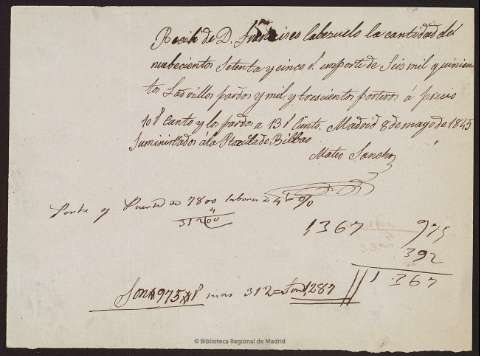 Recibi de D. Francisco Cabezuelo la cantidad del
nuebecientos setenta y cinco r. importe de Seis mil y quinien
tos Ladrillos pardos y mil y trescientos porteros á precio
10 r Ciento y lo pardo a 13 r Ciento. Madrid 8 de mayo de 1845
Suministrados á la Plazuela de Bilbao
Mateo Sanchez
Porte y Puerta de 7800 labores a 4 r %
31200
1367
975
392
1 367
Son 975 r mas 312 = Son 1287
© Biblioteca Regional de Madrid